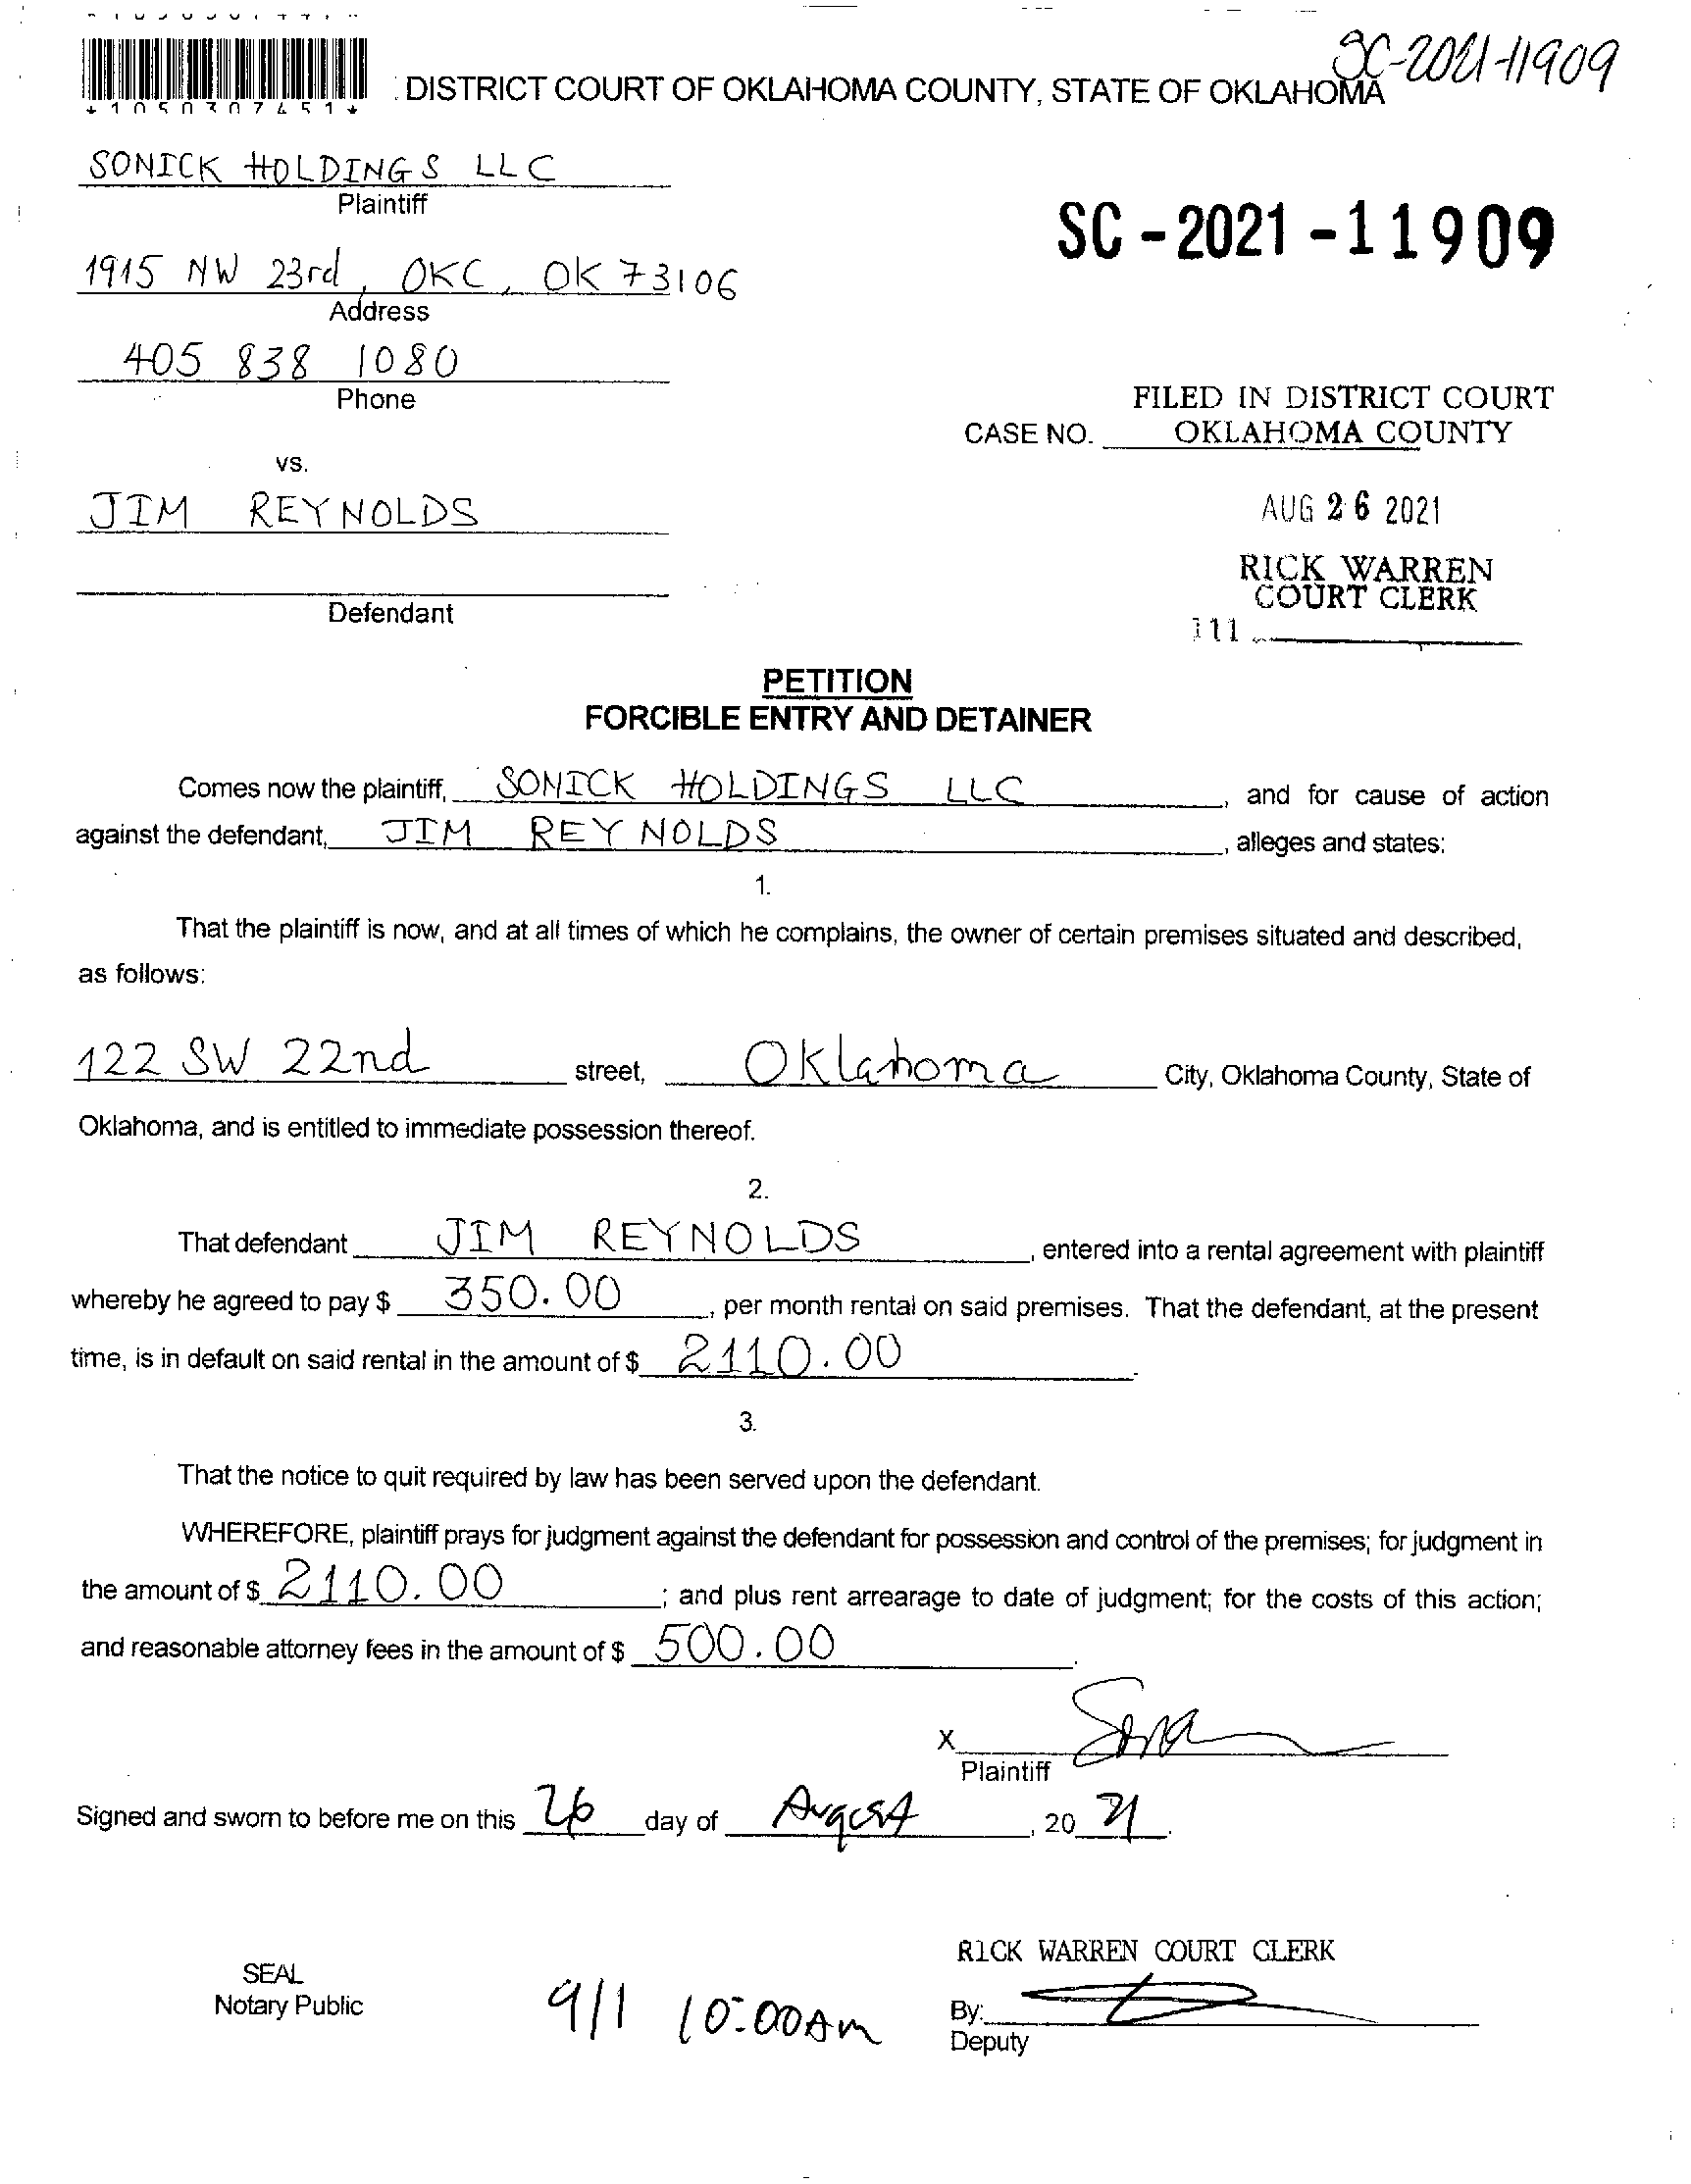 *1050307451*
DISTRICT COURT OF OKLAHOMA COUNTY, STATE OF OKLAHOMA
SC-2021-11909
SONICK HOLDINGS LLC
Plaintiff
SC-2021-11909
1915 NW 23rd, OKC, OK 73106
Address
405 838 1080
Phone
FILED IN DISTRICT COURT
CASE NO. OKLAHOMA COUNTY
vs.
JIM REYNOLDS
AUG 26 2021
RICK WARREN
COURT CLERK
Defendant
111
PETITION
FORCIBLE ENTRY AND DETAINER
Comes now the plaintiff, SONICK HOLDINGS LLC, and for cause of action
against the defendant, JIM REYNOLDS, alleges and states:
1.
That the plaintiff is now, and at all times of which he complains, the owner of certain premises situated and described,
as follows:
122 SW 22nd street, Oklahoma City, Oklahoma County, State of
Oklahoma, and is entitled to immediate possession thereof.
2.
That defendant JIM REYNOLDS, entered into a rental agreement with plaintiff
whereby he agreed to pay $ 350.00, per month rental on said premises. That the defendant, at the present
time, is in default on said rental in the amount of $ 2110.00.
3.
That the notice to quit required by law has been served upon the defendant.
WHEREFORE, plaintiff prays for judgment against the defendant for possession and control of the premises; for judgment in
the amount of $ 2110.00; and plus rent arrearage to date of judgment; for the costs of this action;
and reasonable attorney fees in the amount of $ 500.00.
X
Plaintiff
Signed and sworn to before me on this 26 day of August, 20 21.
RICK WARREN COURT CLERK
SEAL
Notary Public
9/1 10:00AM
By:
Deputy